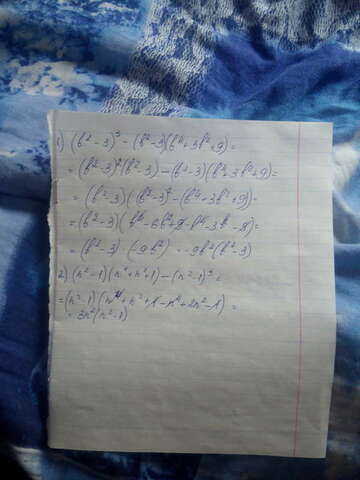 1) (b²-3)³ - (b²-3)(b⁴+3b²+9) =
= (b²-3)²(b²-3) - (b²-3)(b⁴+3b²+9) =
= (b²-3)((b²-3)² - (b⁴+3b²+9)) =
= (b²-3)(b⁴-6b²+9-b⁴-3b²-9) =
= (b²-3)·(-9b²) = -9b²(b²-3)
2) (n²-1)(n⁴+n²+1) - (n²-1)³ =
= (n²-1)(n⁴+n²+1-n⁴+2n²-1) =
= 3n²(n²-1)